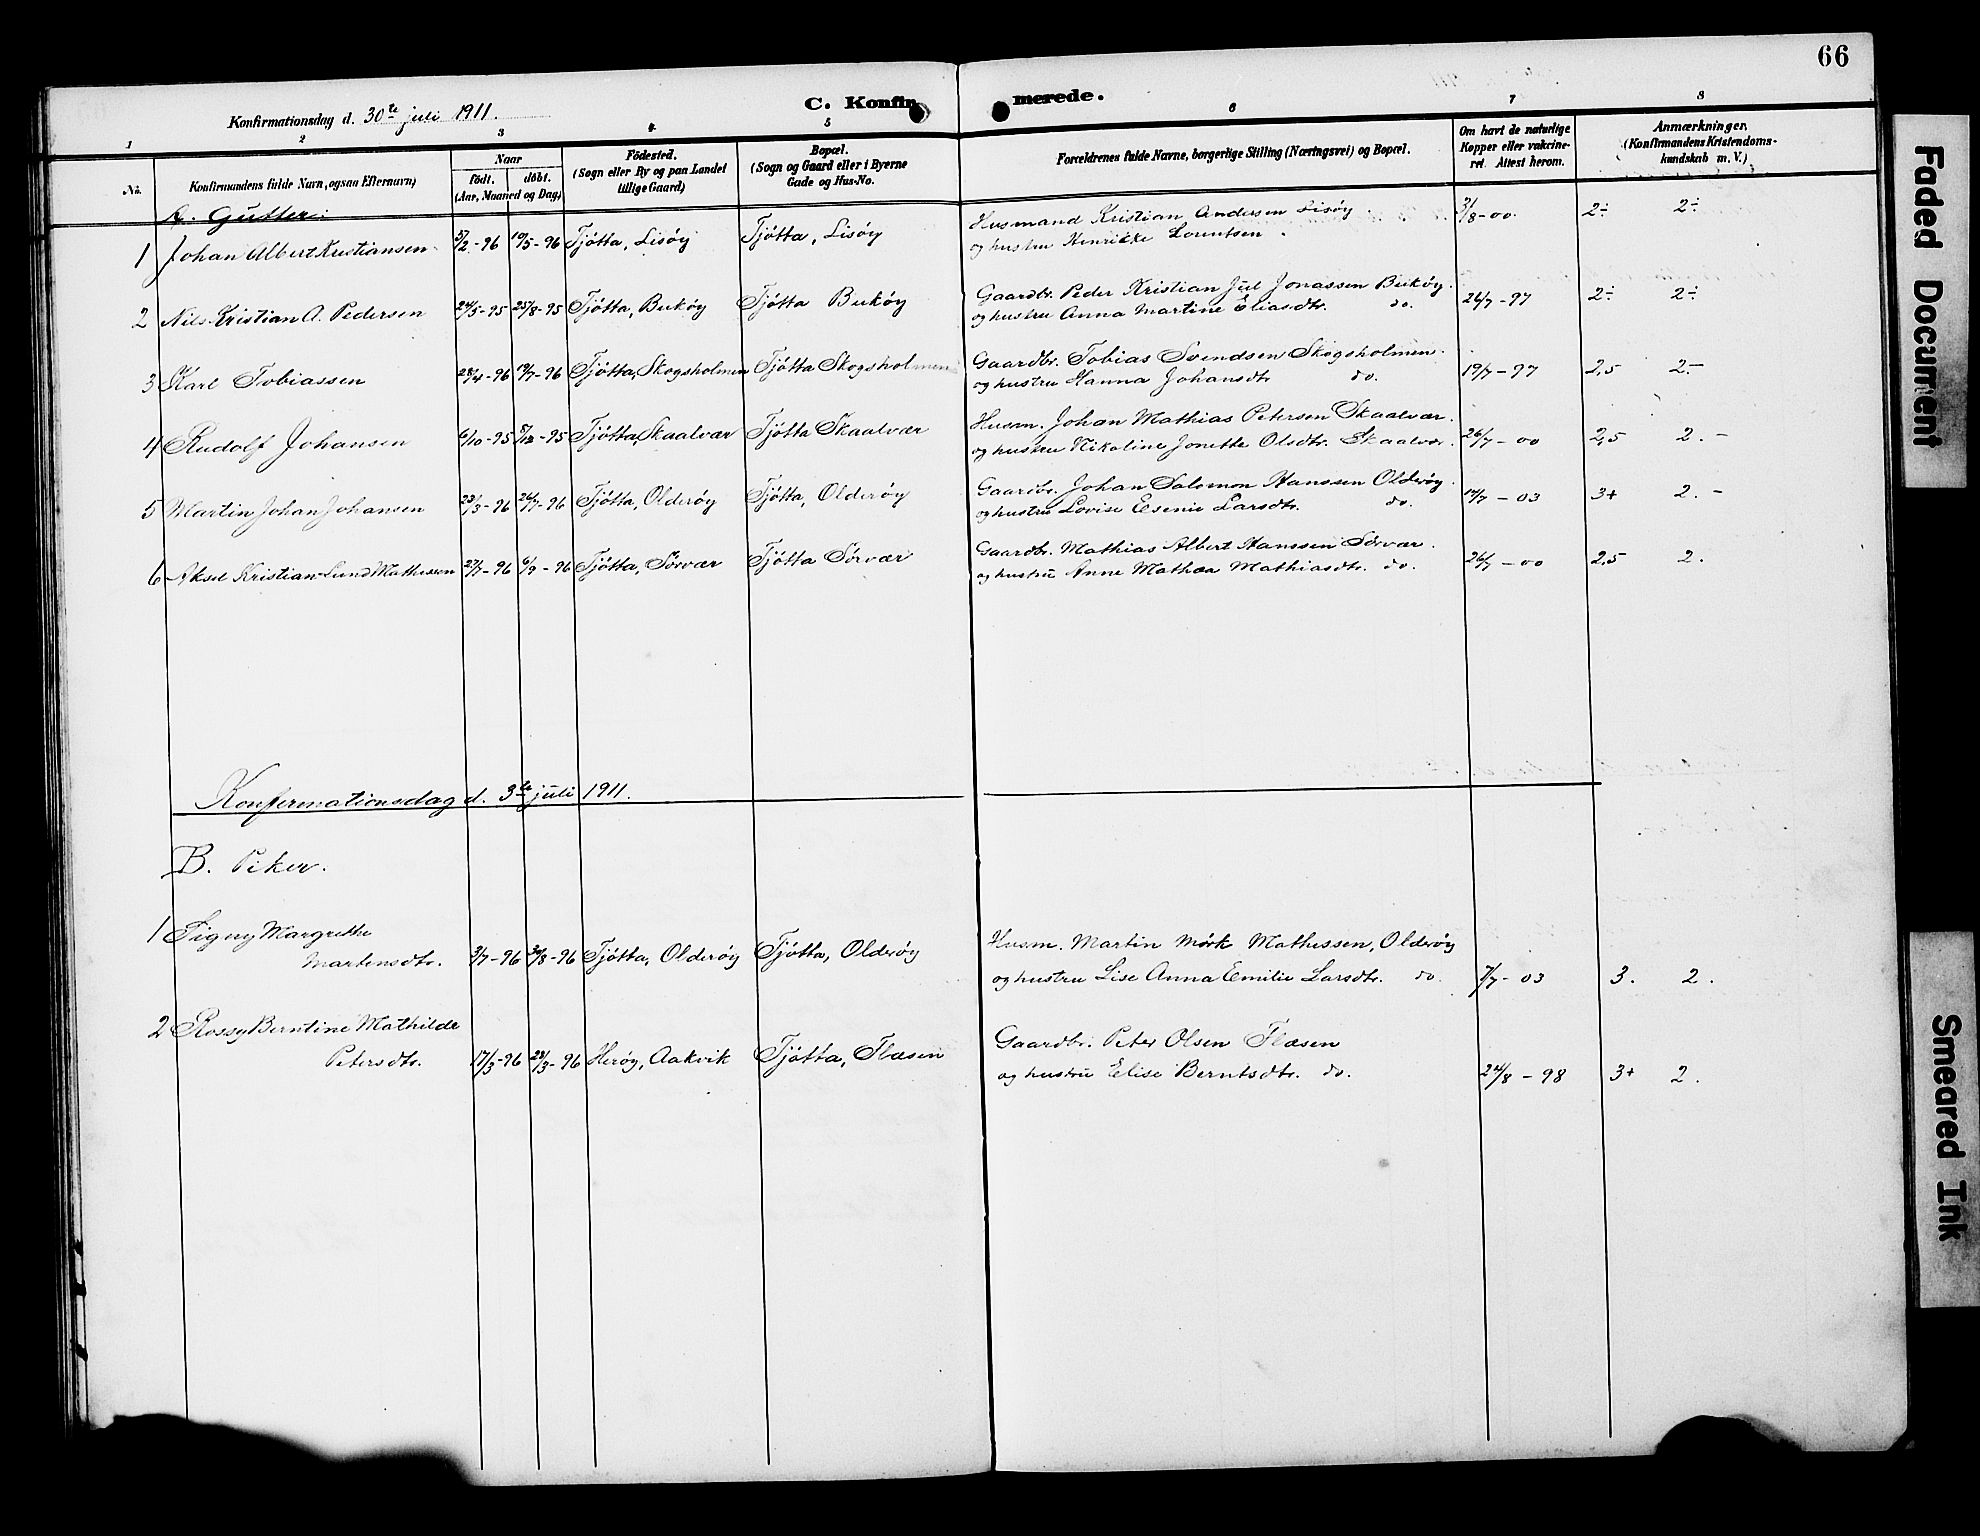 66
Konfirmationsdag d. 30te juli 1911.
C. Konfirmerede.
1 2 3 4 5 6 7 8
No.
Konfirmandens fulde Navn, ogsaa Efternavn)
Naar
födt. döbt.
(Aar, Maaned og Dag)
Födested.
(Sogn eller By og paa Landet
tillige Gaard)
Bopæl.
(Sogn og Gaard eller i Byerne
Gade og Hus-No.
Forældrenes fulde Navne, borgerlige Stilling (Næringsvei) og Bopæl.
Om havt de naturlige
Kopper eller vakcine-
ret. Attest herom.
Anmærkninger.
(Konfirmandens Kristendoms-
kundskab m. V.)
A. Gutter:
1 Johan Albert Kristiansen 5/2-96 10/5-96 Tjötta, Lisöy Tjötta, Lisöy Husmand Kristian Andersen Lisöy 31/8-00. 2÷ 2÷
og hustru Henrikke Lorentsen.
2 Nils Kristian A. Pedersen 24/5-95 25/8-95 Tjötta, Buköy Tjötta Buköy Gaardbr. Peder Kristian Jul Jonassen Buköy. 26/7-97 2÷ 2÷
og hustru Anna Martine Eliasdtr. do.
3 Karl Tobiassen 28/4-96 19/7-96 Tjötta, Skogsholmen Tjötta Skogsholmen Gaardbr. Tobias Svendsen Skogsholmen. 19/7-97 2,5 2.-
og hustru Hanna Johansdtr do.
4 Rudolf Johansen 6/10-95 5/12-95 Tjötta, Skaalvær Tjötta Skaalvær Husm. Johan Mathias Petersen Skaalvær. 26/7-00 2,5 2.-
og hustru Nikoline Jonette Olsdtr. Skaalvær.
5 Martin Johan Johansen 23/3-96 26/7-96 Tjötta, Olderöy Tjötta, Olderöy Gaardbr. Johan Salomon Hanssen Olderöy. 17/7-03 3+ 2.-
og hustru Lovise Esenie Larsdtr. do.
6 Aksel Kristian Lund Mathissen 27/7-96 6/9-96 Tjötta, Sörvær Tjötta Sörvær Gaardbr. Mathias Albert Hanssen Sörvær. 26/7-00 2,5 2.
og hustru Anne Mathea Mathiasdtr. do.
Konfirmationsdag d. 3te juli 1911.
B. Piker.
1 Signy Margrethe Husm. Martin Mörk Mathissen, Olderöy
Martensdtr. 3/7-96 30/8-96 Tjötta, Olderöy Tjötta, Olderöy og hustru Lise Anna Emilie Larsdtr. do. 7/7-03 3. 2.
2 Rossy Berntine Mathilde Gaardbr. Peter Olsen Flæsen
Petersdtr. 17/3-96 28/3-96 Heröy, Aakvik Tjötta, Flæsen og hustru Elise Berntsdtr. do. 24/8-98 3+ 2.
Faded Document
Smeared Ink